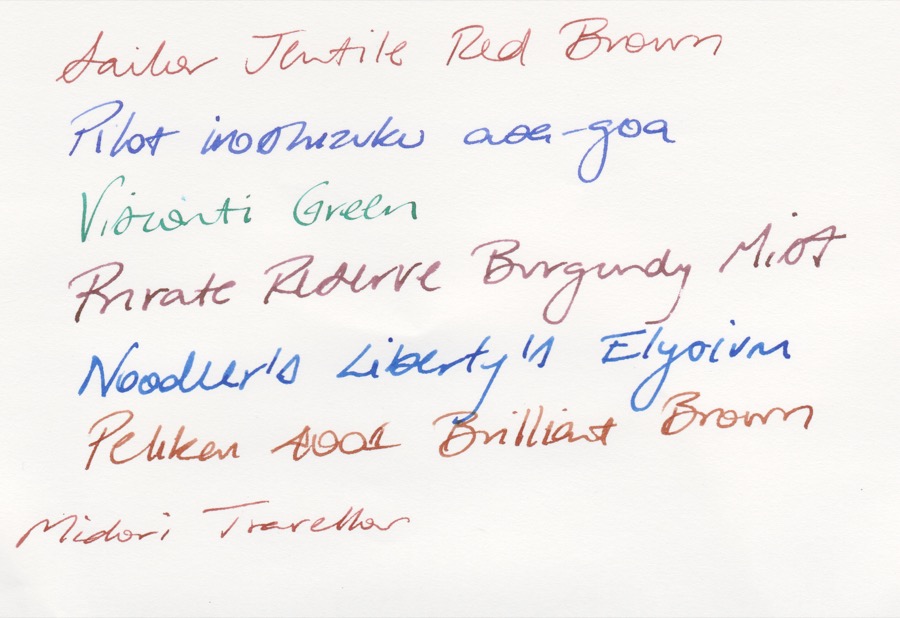 Sailor Jentile Red Brown
Pilot iroshizuku asa-gao
Visconti Green
Private Reserve Burgundy Mist
Noodler's Liberty's Elysium
Pelikan 4001 Brilliant Brown
Midori Traveller